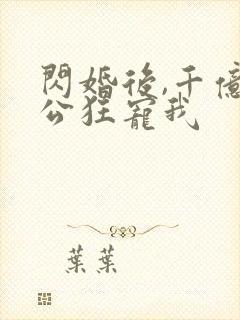 閃婚後,千億
公狂寵我
葉葉